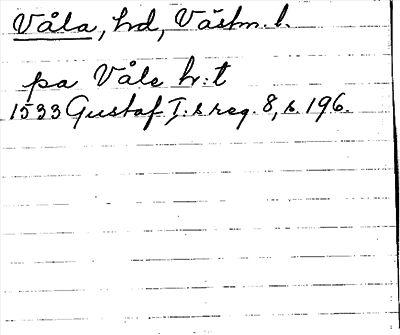 Våla, hd, Västm. l.
pa Våle hr:t
1533 Gustaf I:s reg. 8, s. 196.